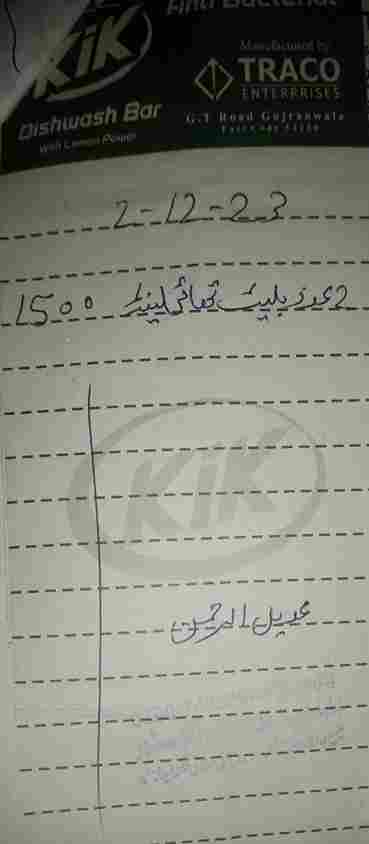 Anti Bacterial
KiK
Dishwash Bar
With Lemon Power
Manufactured by
TRACO
ENTERPRISES
G.T Road Gujranwala
2-12-23
2 عدد بلیٹ تھائی لینڈ 1500
KiK
عدیل الرحمن